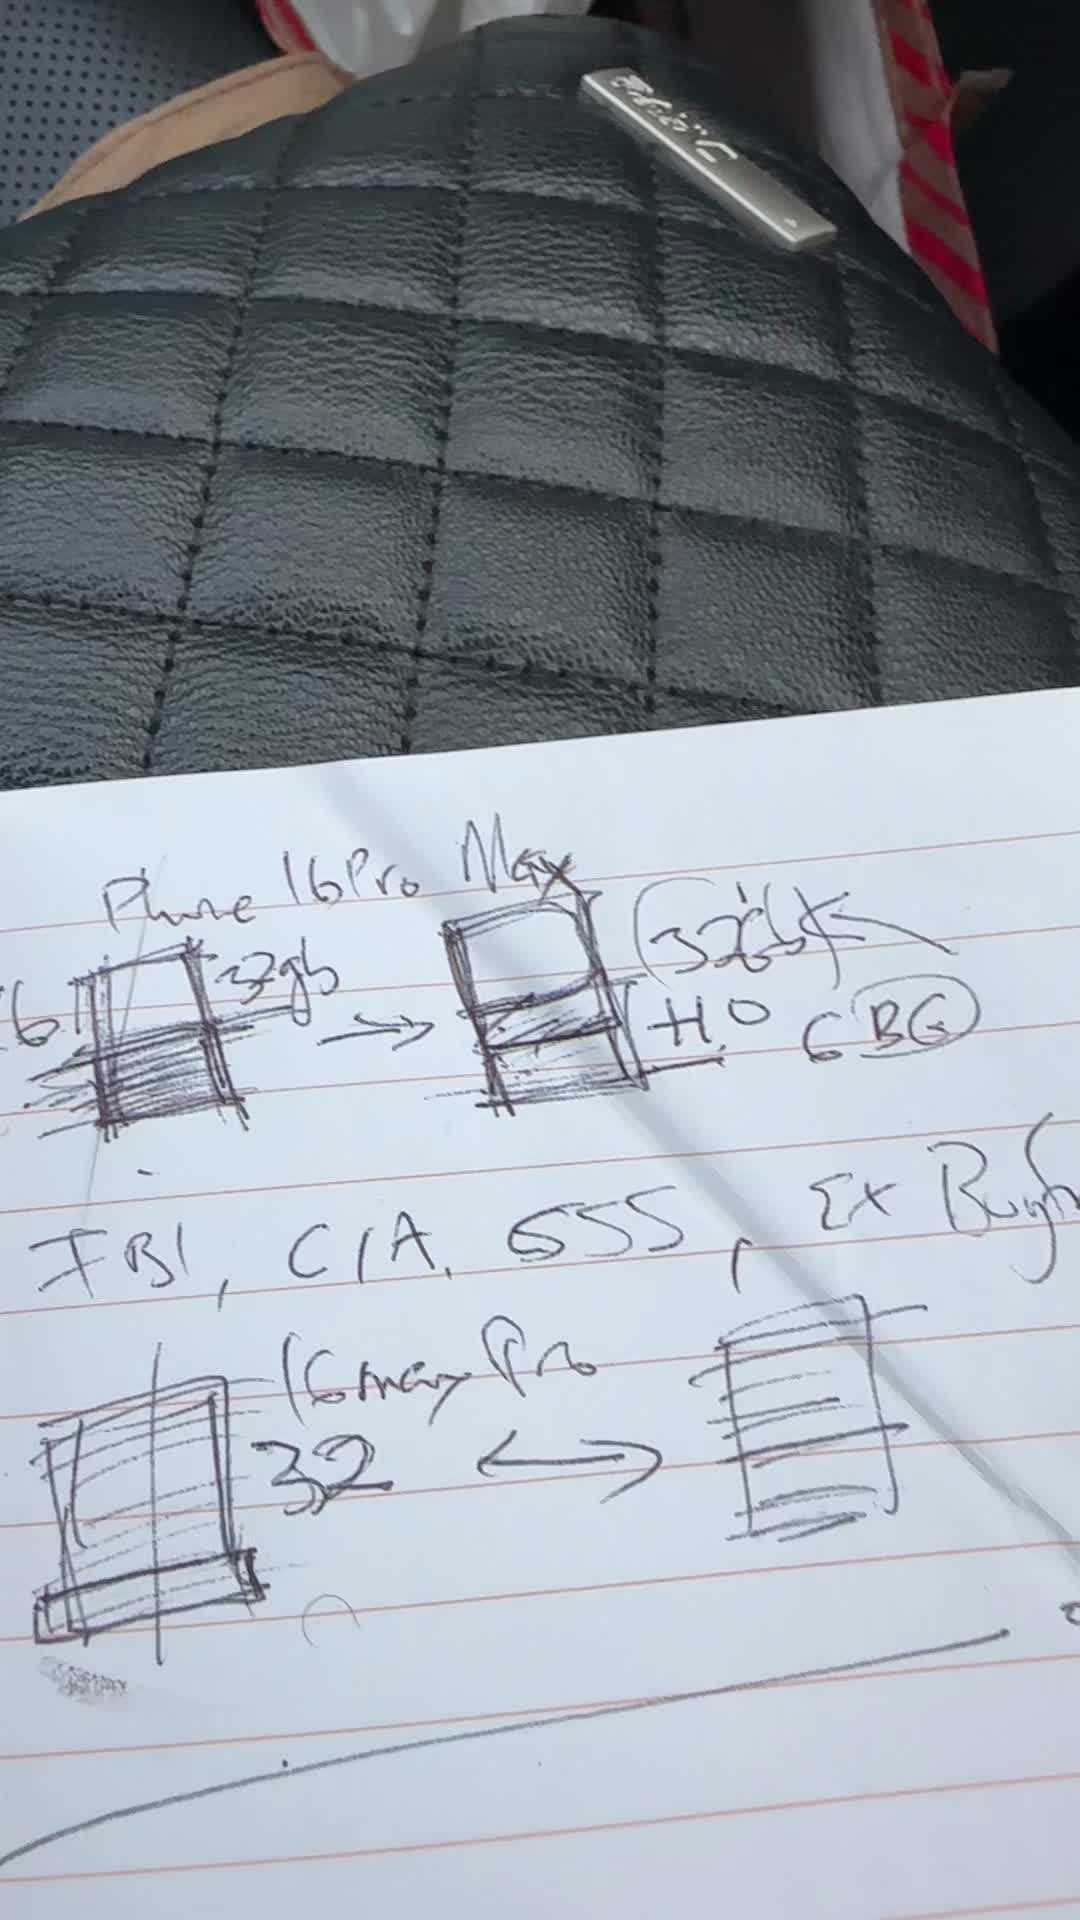 Phone 16 Pro Max
16
32gb
32gb
H.O
GBG
FBI, CIA, 555, Ex
16 max Pro
32